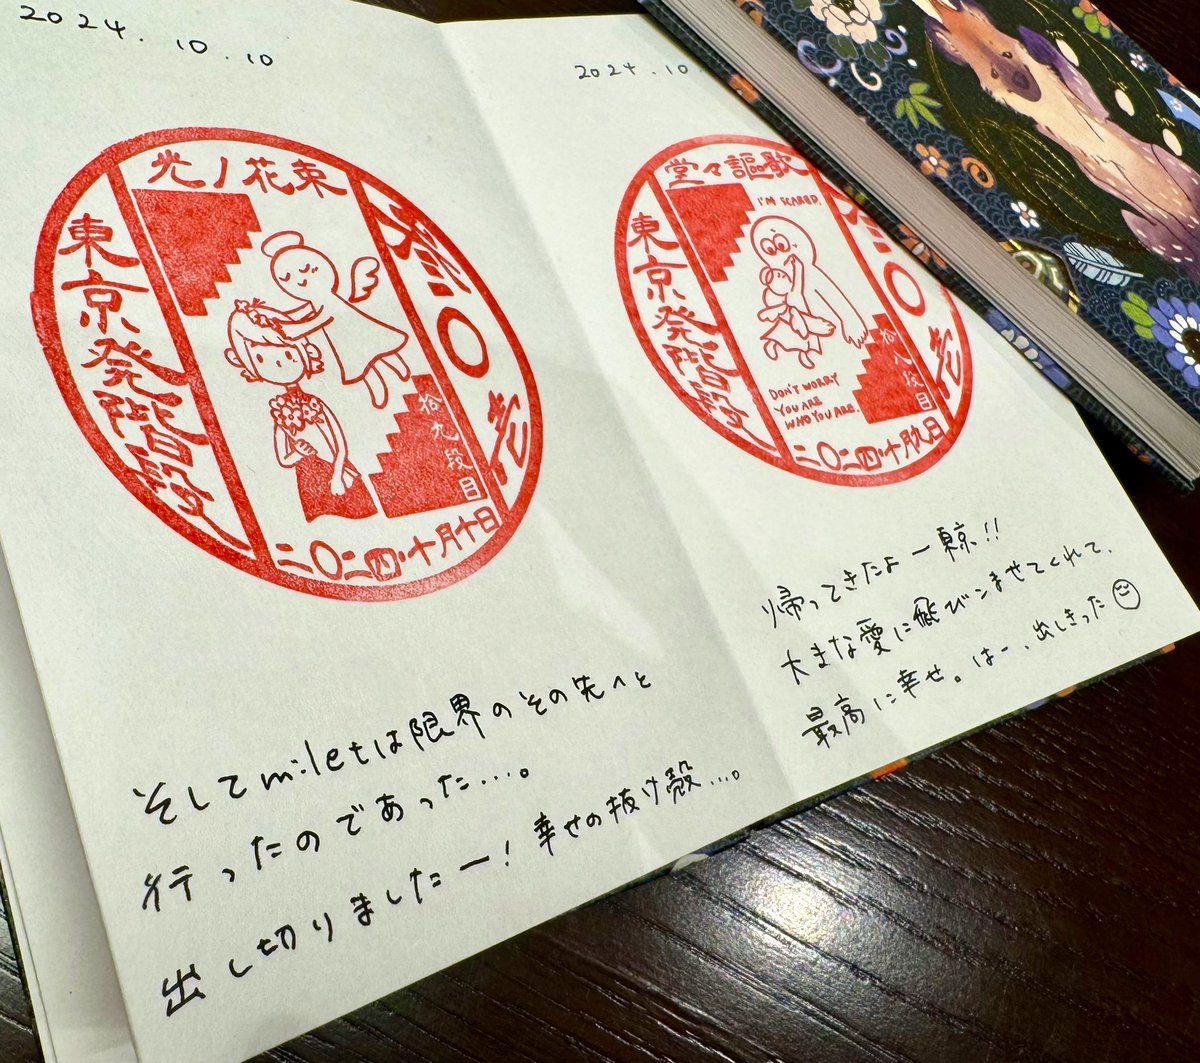 2024.10.10
光ノ花束
東京発階段
拾九段目
二〇二四・十月十日
そしてmiletは限界のその先へと
行ったのであった….。
出し切りましたー！幸せの抜け殻….。
2024.10.
堂々謳歌
東京発階段
I'M SCARED.
DON'T WORRY
YOU ARE
WHO YOU ARE.
拾八段目
二〇二四・十月九日
帰ってきたよー東京!!
大きな愛に飛びこませてくれて、
最高に幸せ。はー、出しきった